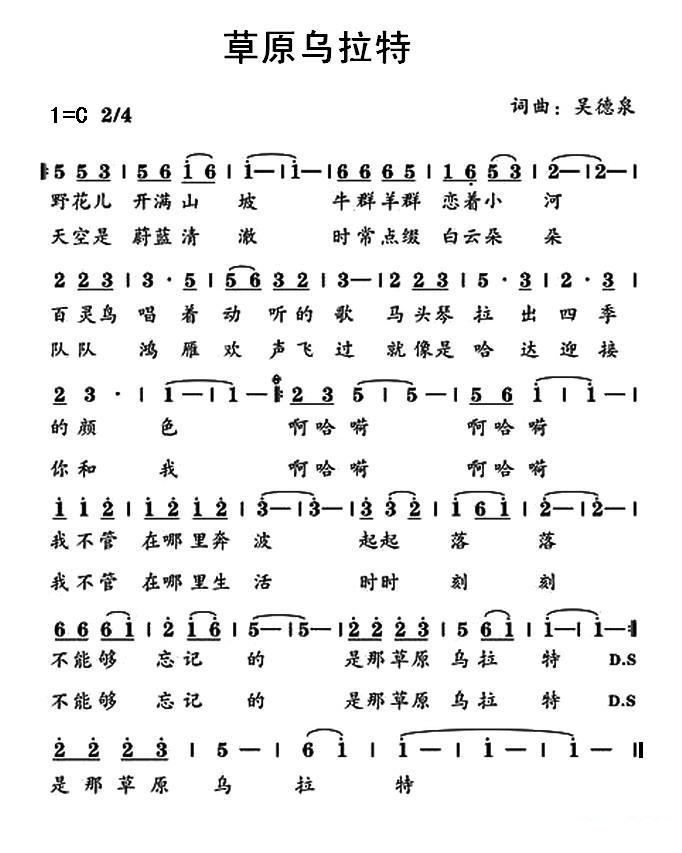 草原乌拉特
1=C 2/4
词曲：吴德泉
5 5 3 | 5 6 1 6 | 1 — | 1 — | 6 6 6 5 | 1 6 5 3 | 2 — | 2 — |
野花儿 开满山 坡 牛群羊群 恋着小 河
天空是 蔚蓝清 澈 时常点缀 白云朵 朵
2 2 3 | 3 · 5 | 5 5 6 3 2 | 3 — | 2 2 3 | 5 · 3 | 2 · 3 |
百灵鸟 唱 着 动 听的 歌 马头琴 拉 出 四 季
队队 鸿 雁 欢 声飞 过 就像是 哈 达 迎 接
2 3 · | 1 — | 1 — 2 3 5 | 5 — | 5 6 1 | 1 — |
的颜 色 啊哈嗬 啊哈嗬
你和 我 啊哈嗬 啊哈嗬
1 1 2 | 1 2 1 2 | 3 — | 3 — | 3 3 2 | 1 6 1 | 2 — | 2 — |
我不管 在哪里奔 波 起起 落 落
我不管 在哪里生 活 时时 刻 刻
6 6 6 1 | 2 1 6 | 5 — | 5 — | 2 2 2 3 | 5 6 1 | 1 — | 1 — :‖
不能够 忘记 的 是那草原 乌拉 特 D.S
不能够 忘记 的 是那草原 乌拉 特 D.S
2 2 2 3 | 5 — | 6 1 | 1 — | 1 — | 1 — ‖
是那草原 乌 拉 特